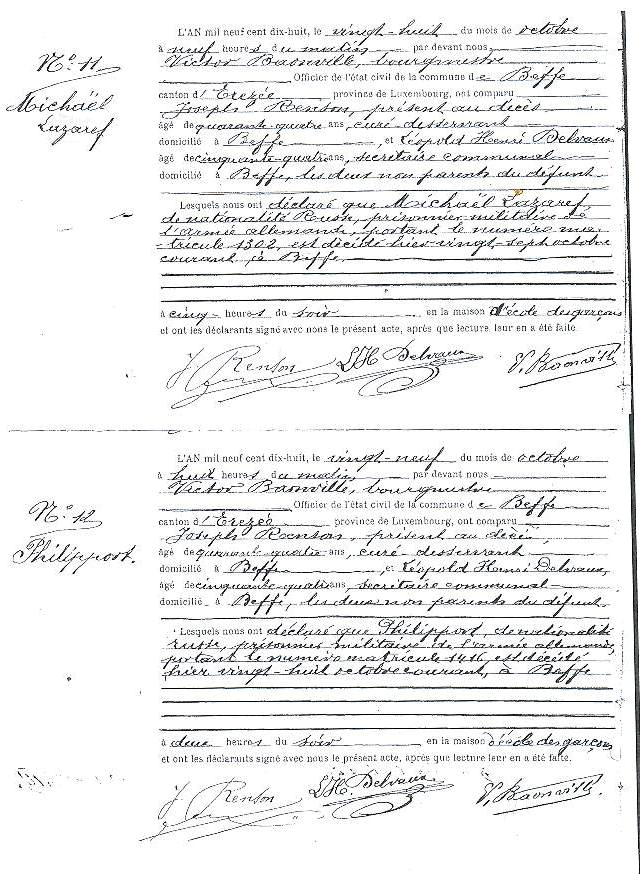 N° 11
Michaël
Lazaref
L'AN mil neuf cent dix-huit, le vingt-huit du mois de octobre
à neuf heures du matin par devant nous
Victor Baonville, bourgmestre
Officier de l'état civil de la commune de Beffe
canton d'Erezée province de Luxembourg, ont comparu
Joseph Renson, présent au décès
âgé de quarante-quatre ans, curé desservant
domicilié à Beffe, et Léopold Henri Delvaux
âgé de cinquante-quatre ans, secrétaire communal
domicilié à Beffe, les deux non parents du défunt
Lesquels nous ont déclaré que Michaël Lazaref,
de nationalité Russe, prisonnier militaire de
l'armée allemande, portant le numéro ma-
-tricule 1302, est décédé hier vingt-sept octobre
courant, à Beffe.
à cinq heures du soir en la maison d'école des garçons
et ont les déclarants signé avec nous le présent acte, après que lecture leur en a été faite.
J Renson L H Delvaux V. Baonville
N° 12
Philipport.
L'AN mil neuf cent dix-huit, le vingt-neuf du mois de octobre
à huit heures du matin par devant nous
Victor Baonville, bourgmestre
Officier de l'état civil de la commune de Beffe
canton d'Erezée province de Luxembourg, ont comparu
Joseph Renson, présent au décès,
âgé de quarante-quatre ans, curé desservant
domicilié à Beffe et Léopold Henri Delvaux,
âgé de cinquante-quatre ans, secrétaire communal
domicilié à Beffe, les deux non parents du défunt.
Lesquels nous ont déclaré que Philipport, de nationalité
russe, prisonnier militaire de l'armée allemande,
portant le numéro matricule 1416, est décédé
hier vingt-huit octobre courant, à Beffe
à deux heures du soir en la maison d'école des garçons
et ont les déclarants signé avec nous le présent acte, après que lecture leur en a été faite.
J Renson L H Delvaux V. Baonville.